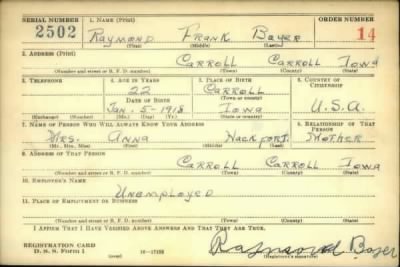 SERIAL NUMBER 1. NAME (Print) ORDER NUMBER
2502 Raymond Frank Bayer 14
(First) (Middle) (Last)
2. ADDRESS (Print)
Carroll Carroll Iowa
(Number and street or R. F. D. number) (Town) (County) (State)
3. TELEPHONE 4. AGE IN YEARS 5. PLACE OF BIRTH 6. COUNTRY OF CITIZENSHIP
22 Carroll
DATE OF BIRTH (Town or county)
Jan. 5-1918 Iowa U.S.A.
(Exchange) (Number) (Mo.) (Day) (Yr.) (State or country)
7. NAME OF PERSON WHO WILL ALWAYS KNOW YOUR ADDRESS 8. RELATIONSHIP OF THAT PERSON
Mrs. Anna Mother
(Mr., Mrs., Miss) (First) (Middle) (Last)
9. ADDRESS OF THAT PERSON
Carroll Carroll Iowa
(Number and street or R. F. D. number) (Town) (County) (State)
10. EMPLOYER'S NAME
Unemployed
11. PLACE OF EMPLOYMENT OR BUSINESS
(Number and street or R. F. D. number) (Town) (County) (State)
I AFFIRM THAT I HAVE VERIFIED ABOVE ANSWERS AND THAT THEY ARE TRUE.
REGISTRATION CARD
D. S. S. Form 1 16-17105 (Registrant's signature)
Raymond Bayer